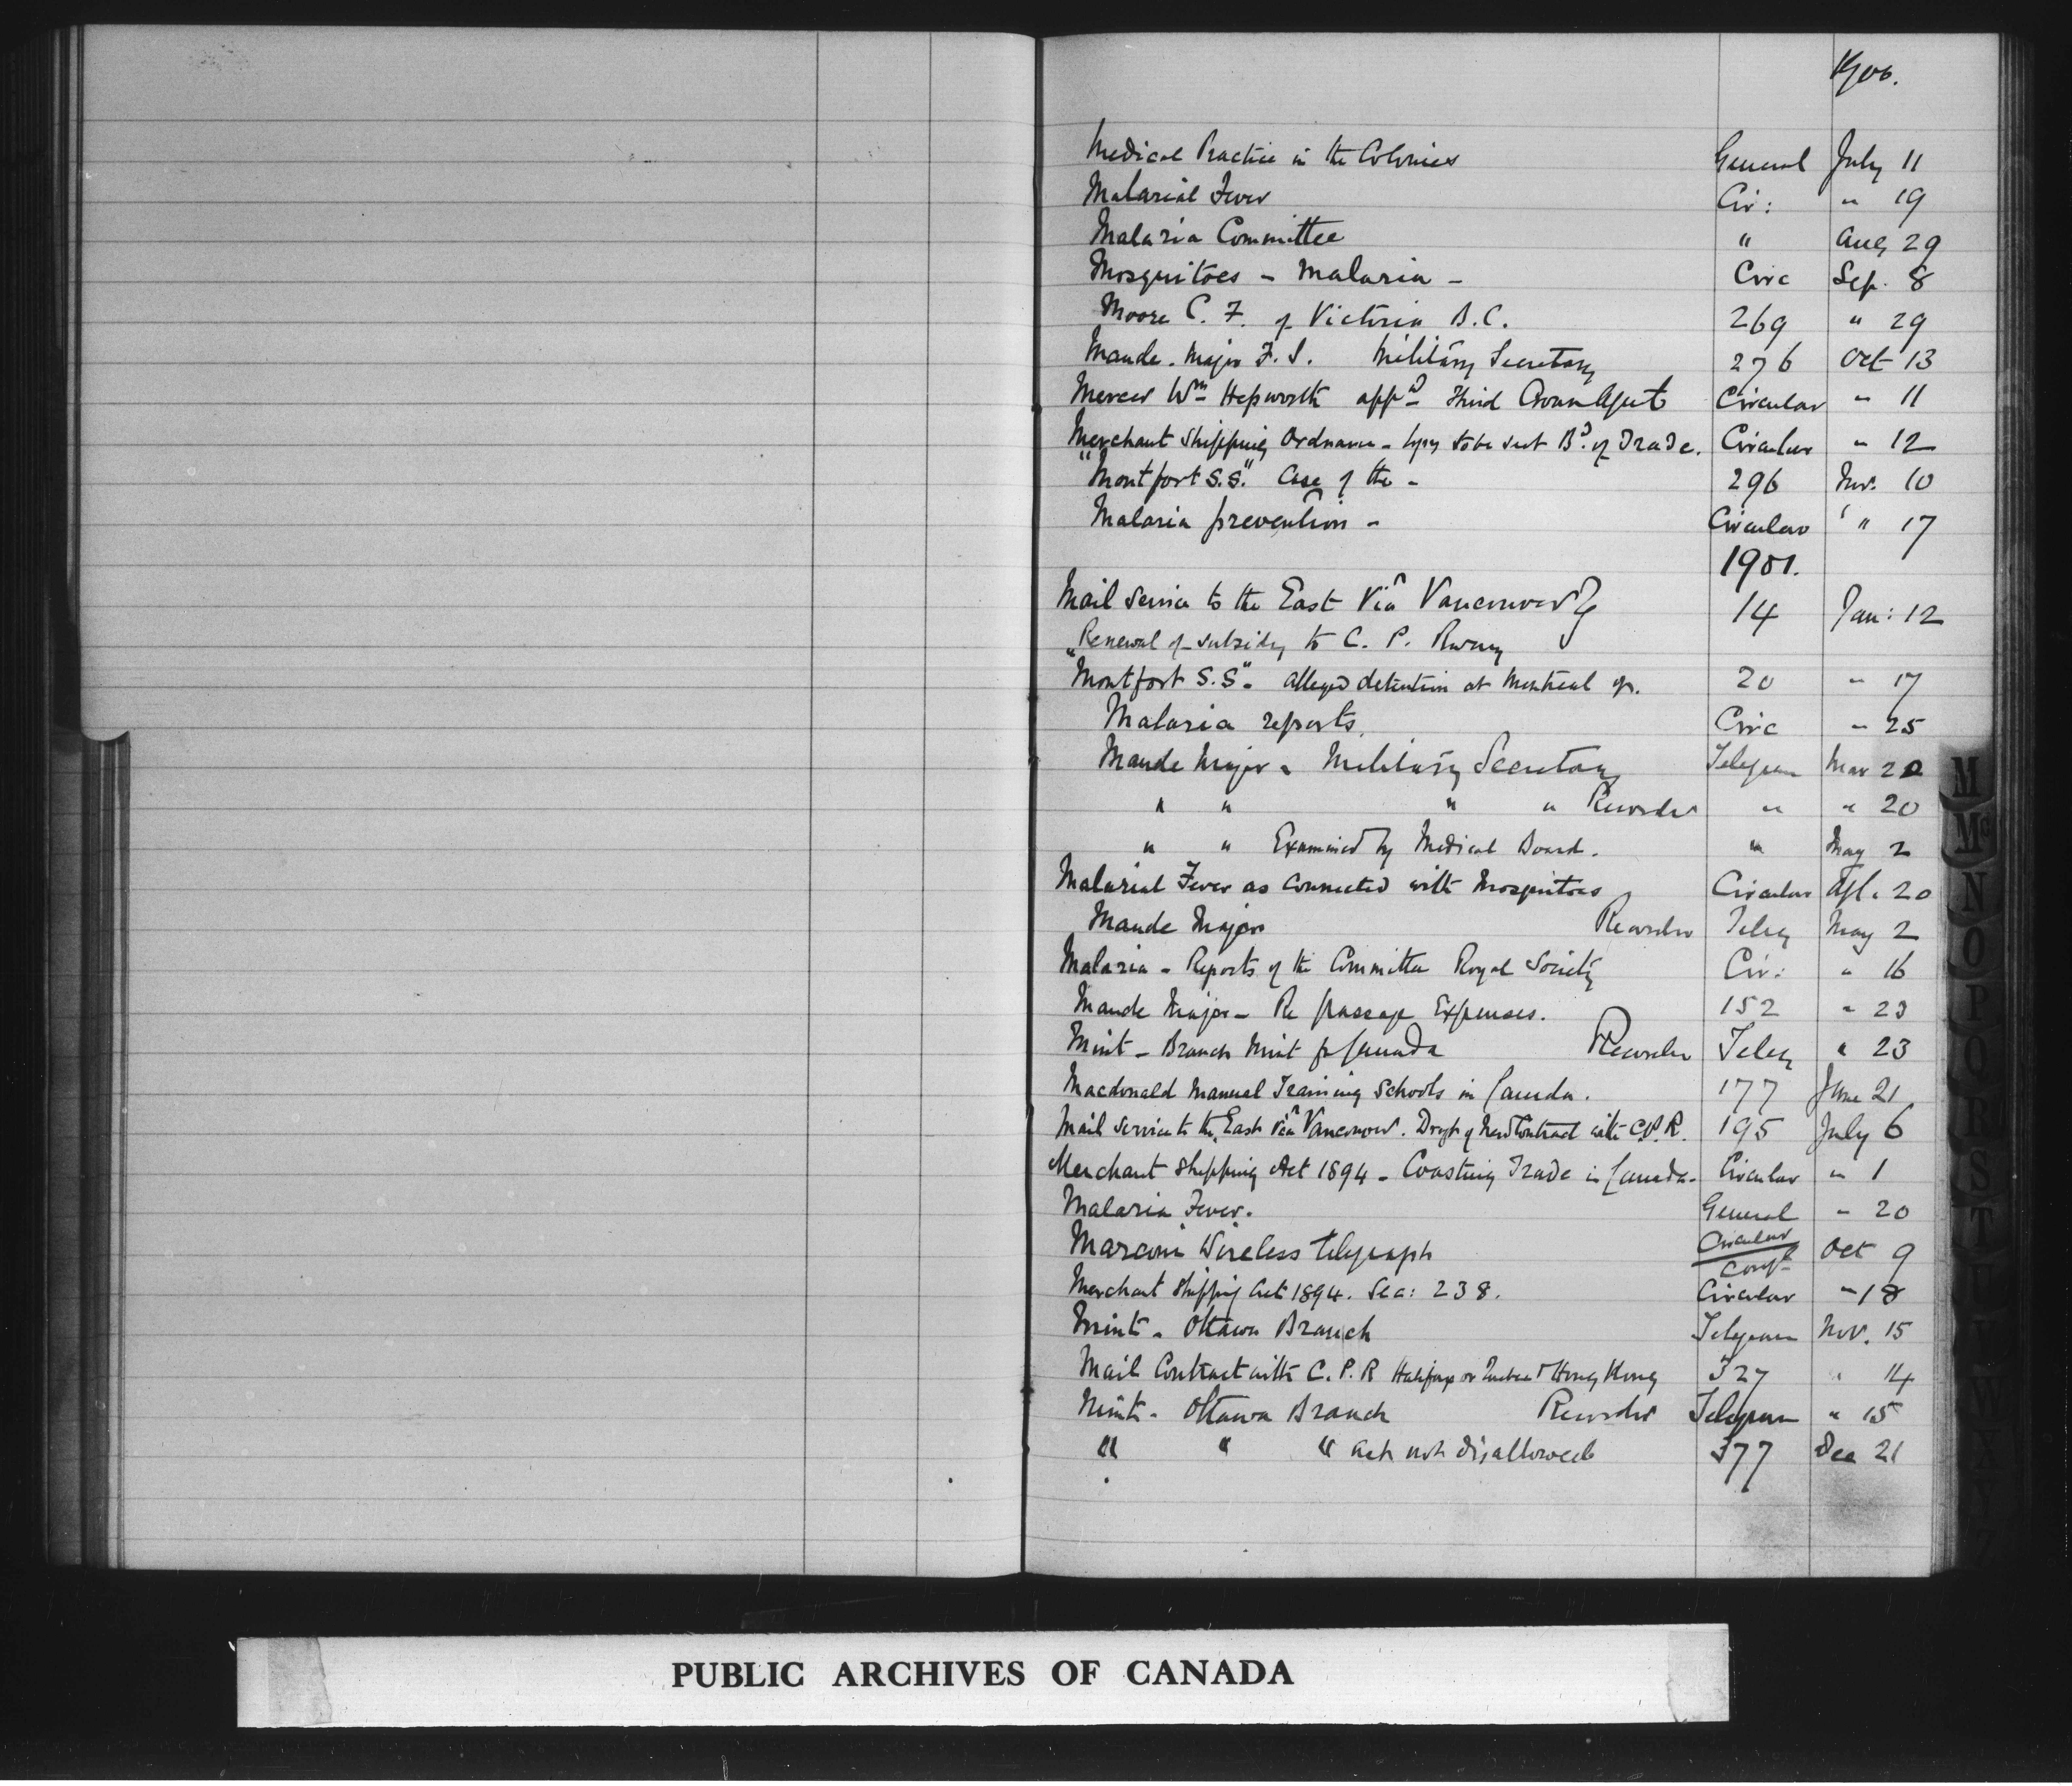 1900.
Medical Practice in the Colonies General July 11
Malarial Fever Cir: " 19
Malaria Committee " Aug 29
Mosquitoes - Malaria - Circ Sep. 8
Moore C. F. of Victoria B.C. 269 " 29
Maude. Major F. S. Military Secretary 276 Oct 13
Mercer Wm Hepworth appd Third Crown Agent Circular " 11
Merchant Shipping Ordnance - Copy to be sent Bd. of Trade. Circular " 12
"Montfort S.S." Case of the - 296 Nov. 10
Malaria prevention - Circular " 17
1901.
Mail Service to the East Via Vancouver 14 Jan: 12
Renewal of subsidy to C. P. Rway
"Montfort S.S". alleged detention at Montreal of. 20 " 17
Malaria reports. Circ " 25
Maude Major - Military Secretary Telegram Mar 20
" " " " Recorder " " 20
" " Examined by Medical Board. " May 2
Malarial Fever as Connected with Mosquitoes Circular Apl. 20
Maude Major Recorder Teleg May 2
Malaria - Reports of the Committee Royal Society Cir: " 16
Maude Major - Re passage Expenses. 152 " 23
Mint - Branch Mint for Canada Recorder Teleg " 23
Macdonald Manual Training Schools in Canada. 177 June 21
Mail service to the East via Vancouver. Draft of New Contract with C.P.R. 195 July 6
Merchant Shipping Act 1894 - Coasting Trade in Canada - Circular " 1
Malaria Fever. General " 20
Marconi Wireless telegraph Circular Conf Oct 9
Merchant Shipping Act 1894. Sec: 238. Circular " 18
Mint - Ottawa Branch Telegram Nov. 15
Mail Contract with C. P. R Halifax or Quebec & Hong Kong 327 " 14
Mint - Ottawa Branch Recorder Telegram " 15
" " " Act not disallowed 377 Dec 21
M
Mc
N
O
P
Q
R
S
T
U
PUBLIC ARCHIVES OF CANADA